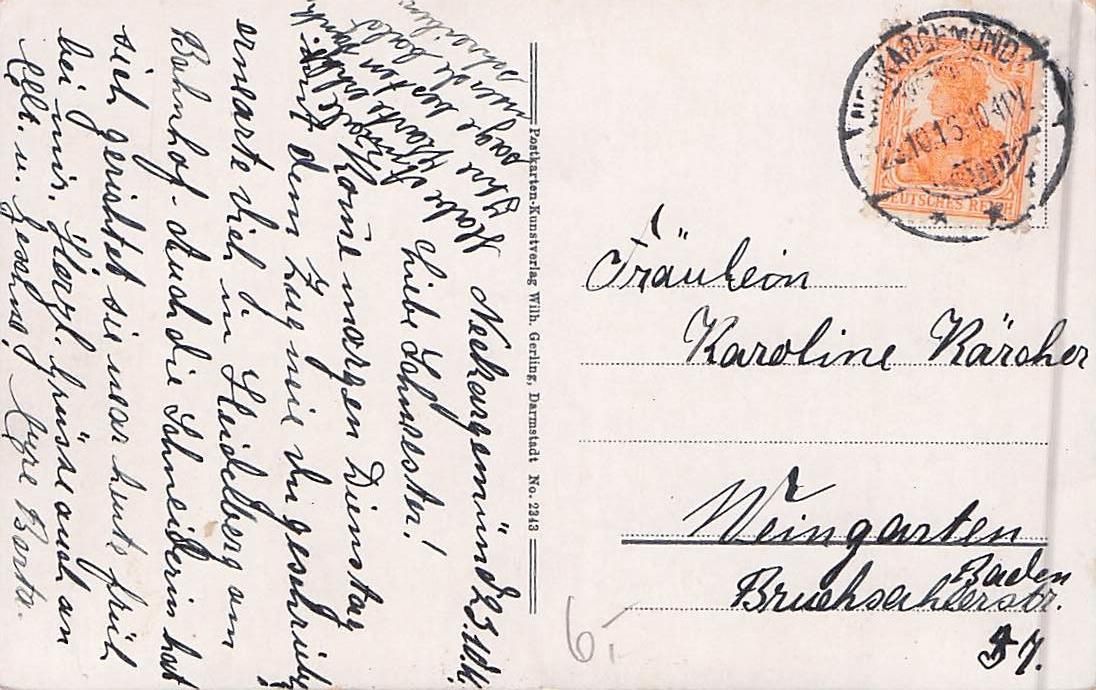 Neckargemünd 23 Okt.
Liebe Schwester!
Komme morgen Dienstag
mit dem Zug wie du geschrieben
erwarte dich in Heidelberg am
Bahnhof. Auch die Schneiderin hat
sich gerichtet sie war heute früh
bei mir. Herzl. Grüsse auch an
Elt. u. Geschw. Eure Berta.
Habe
Karte
sage besten Dank
Postkarten-Kunstverlag Wilh. Gerling, Darmstadt No. 2343
NECKARGEMÜND
DEUTSCHES REICH
Fräulein
Karoline Kärcher
Weingarten
Baden
Bruchsalerstr.
37.
6.-